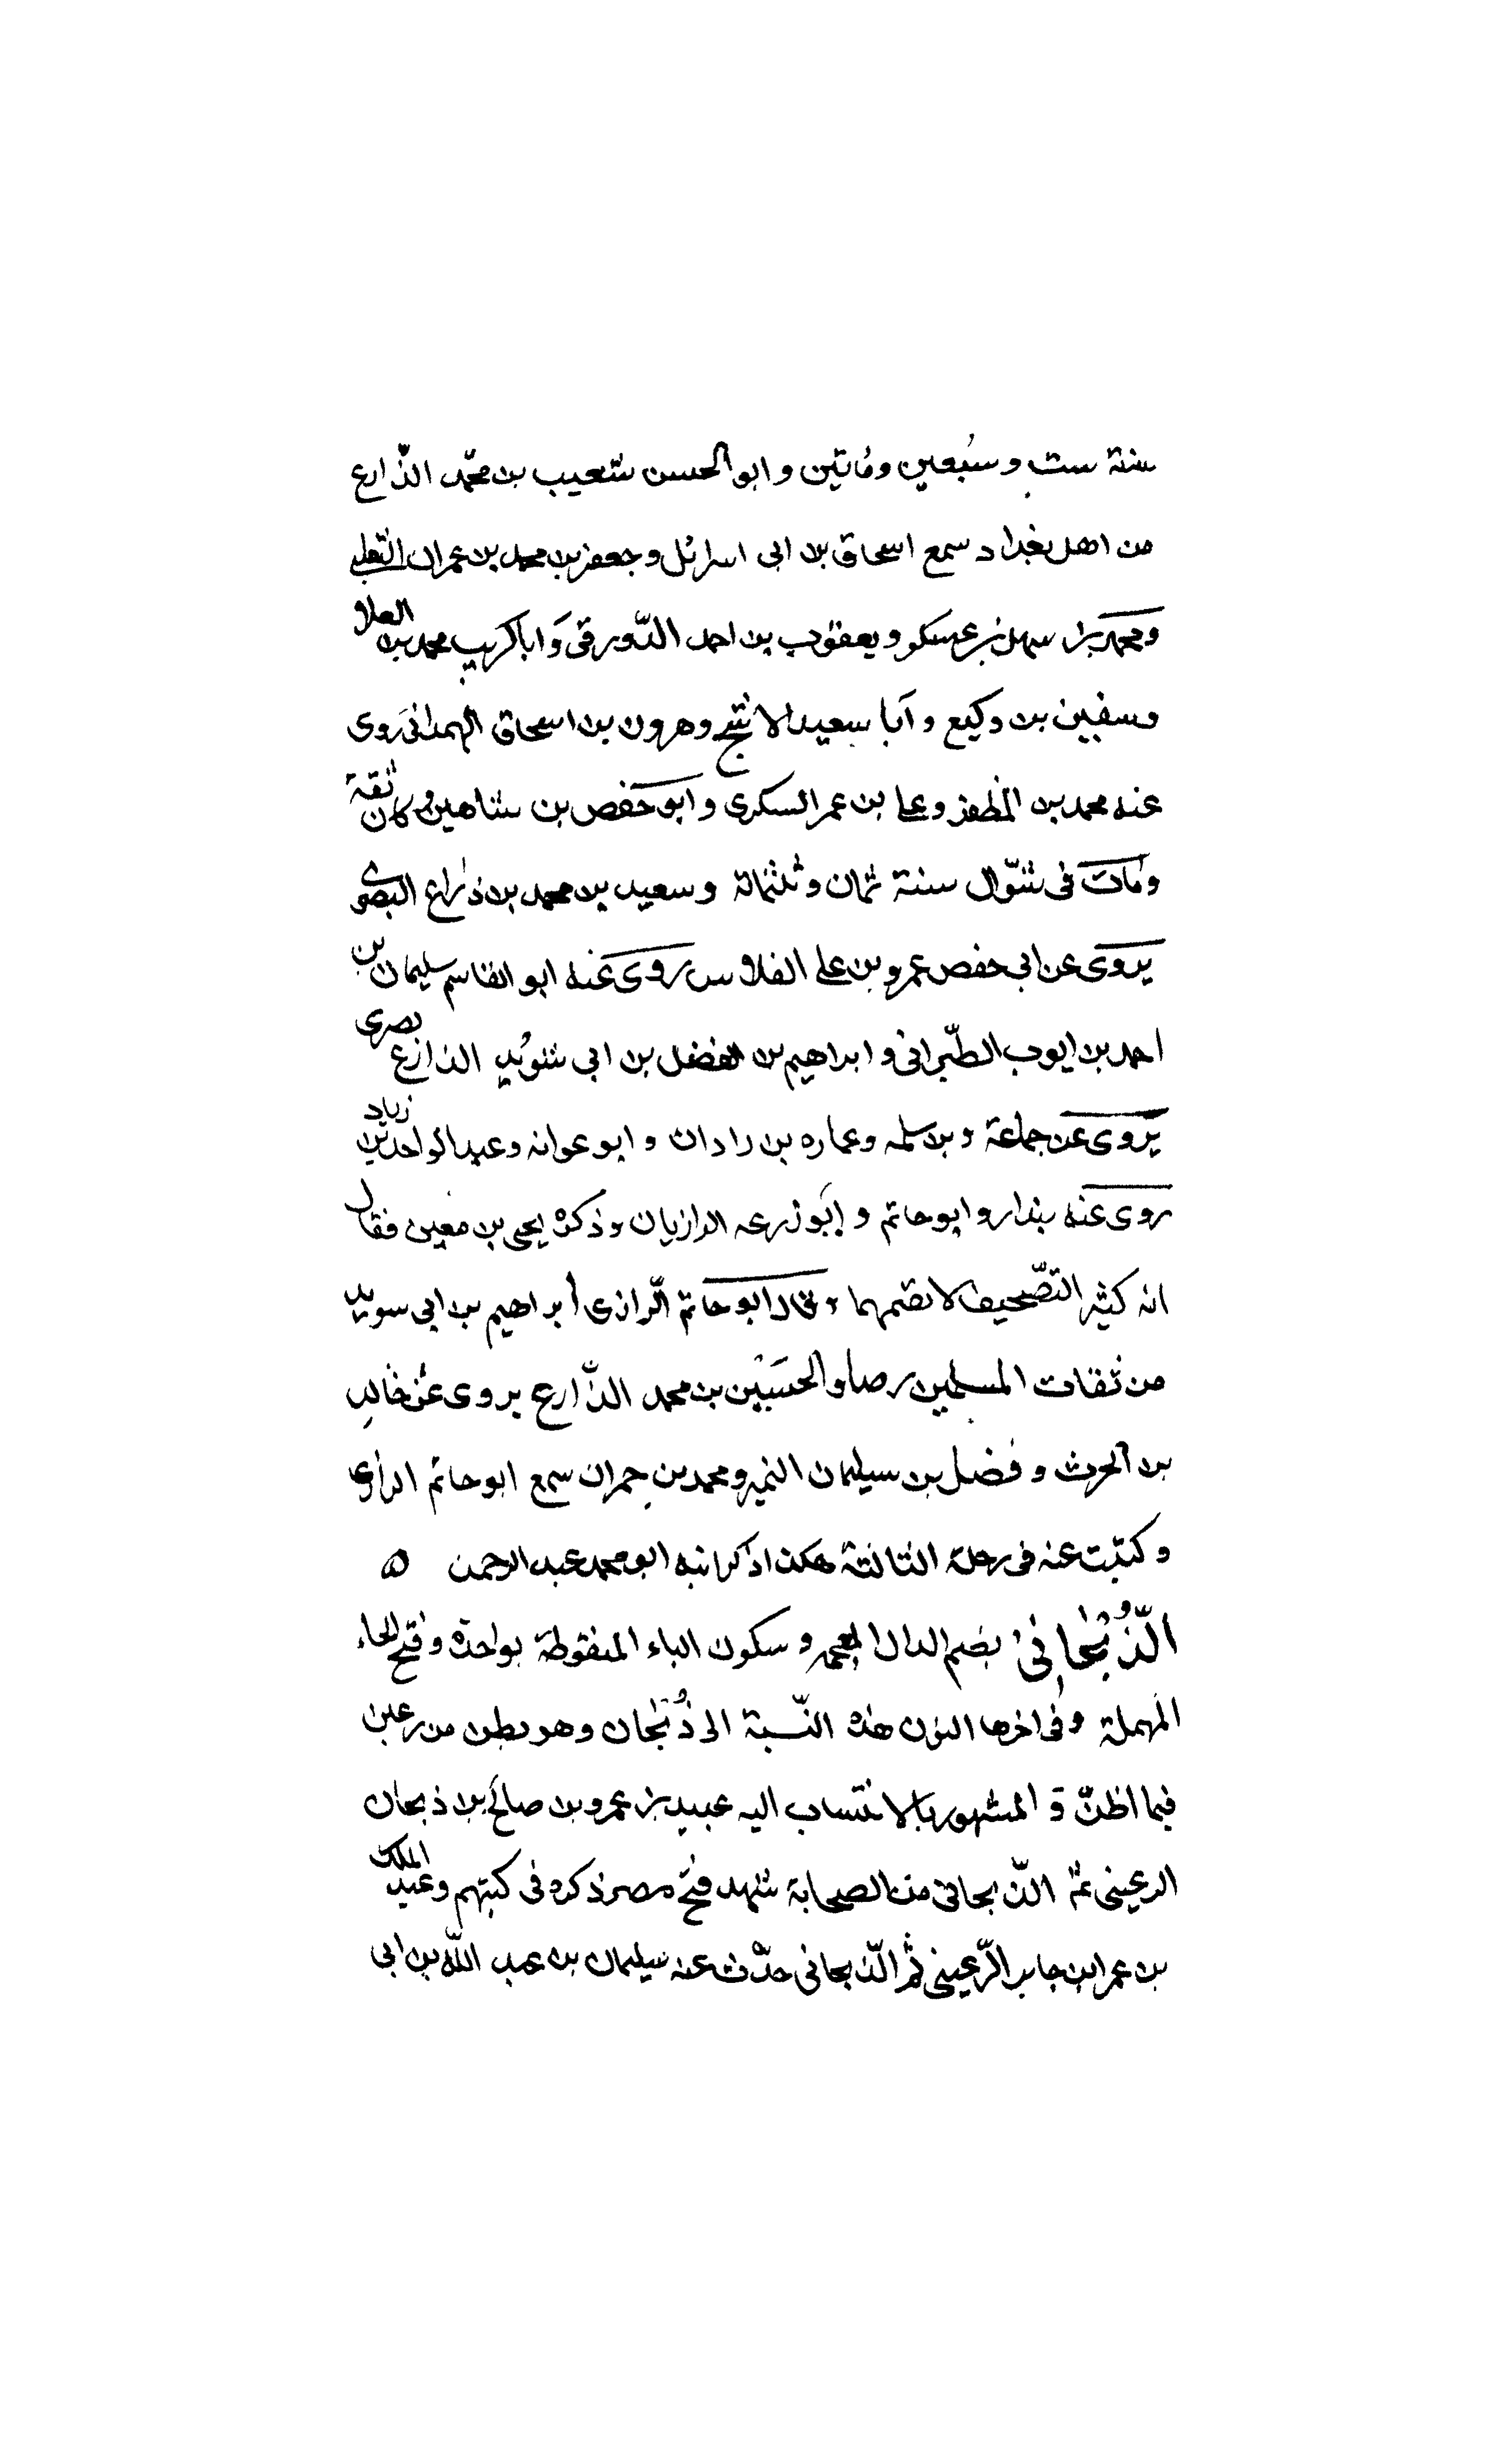 سنة ست وسبعين ومأتين وابو الحسن شعيب بن محمّد الذّارع
من اهل بغداد سمع اسحاق بن ابى اسرائل وجعفر بن محمد بن عمران الثعلبى
ومحمد بن سهل بن عسكر ويعقوب بن احمد الدّورقى وَ ابا كريب محمد بن العلا
وسفيين بن وكيع وأبا سعيد الاشج وهرون بن اسحاق الهمدانى روى
عنه محمد بن المظفر وعلى بن عمر السكرى وابو حفص بن شاهين وكان ثقة
ومات فى شوّال سنة ثمان وثلثمائة وسعيد بن محمد بن ذراع البصرى
يروى عن ابى حفص عمرو بن على الفلاس روى عنه ابو القاسم سليمان بن
احمد بن ايوب الطّبرانى و ابراهيم بن الفضل بن ابى سُويد الذارع بصرى
يروى عن جماعة وبن سلمه وعماره بن زادان و ابو عوانه وعبد الواحد بن زياد
روى عنه بندار وابو حاتم و ابو زرعه الرازيان وذكره يحيى بن معين فقال
انه كثير التصّحيف لا يقيمها وقال ابو حاتم الرّازى ابراهيم بن ابى سويد
من ثقات المسلمين رضا والحسَيْن بن محمد الذّارع يروى عن خالد
بن الحرث و فضل بن سليمان النميرى ومحمد بن حمران سمع ابو حاتم الرازى
وكتبت عنه فى رحلة الثالثة هكذا ذكر ابنه ابو محمد عبد الرحمن ه
الذُّبْحانِىُ بضم الدال المعجمه وسكون الباء المنقوطة بواحدة وفتح الحاء
المهملة وفى اخرها النون هذه النّسبة الى ذُبْحان وهو بطن من رعين
فيما اظنّ و المشهور بالانتساب اليه عبيد بن عمرو بن صالح بن ذبحان
الرعينى ثمّ الذّبحانى من الصحابة شهد فتح مصر ذكره فى كتبهم وعبد الملك
بن عمر ابن جابر الرّعينى ثم الذّبحانى حدّث عنه سليمان بن عبد الله بن ابى